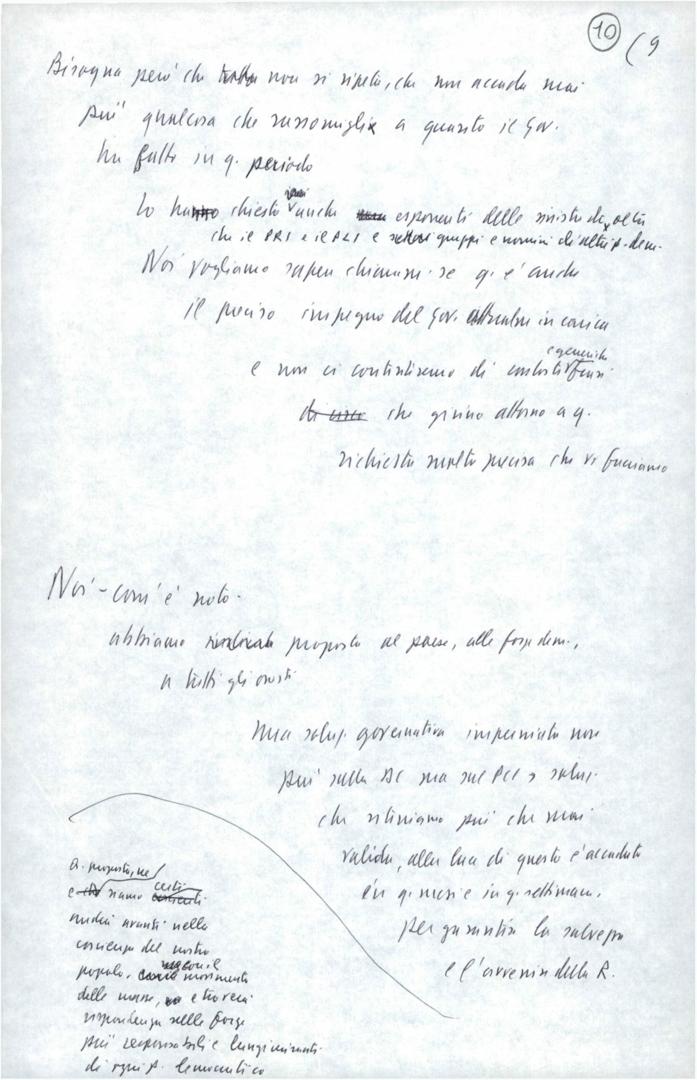 10 (9
Bisogna però che non si ripeta, che non accada mai
più qualcosa che rassomiglia a quanto il Gov.
ha fatto in q. periodo
Lo hanno chiesto ieri anche esponenti delle sinistre dc, oltre
che il PRI e il PLI e settori gruppi e uomini di altri p. dem.
Noi vogliamo sapere chiaram. se q. è anche
il preciso impegno del Gov. attualm. in carica
e non ci contenteremo di contorte e generiche frasi
che girino attorno a q.
richiesta molto precisa che vi facciamo
Noi - com'è noto -
abbiamo proposto al paese, alle forze dem.,
a tutti gli onesti
una soluz. governativa imperniata non
più sulla DC ma sul PCI, soluz.
che riteniamo più che mai
valida, alla luce di quanto è accaduto
in q. mesi e in q. settimane,
per garantire la salvezza
e l'avvenire della R.
Q. proposta, ne
e siamo certi
andrà avanti nella
coscienza del nostro
popolo, movimento
delle masse, e troverà
rispondenza nelle forze
più responsabili e lungimiranti
di ogni p. democratico